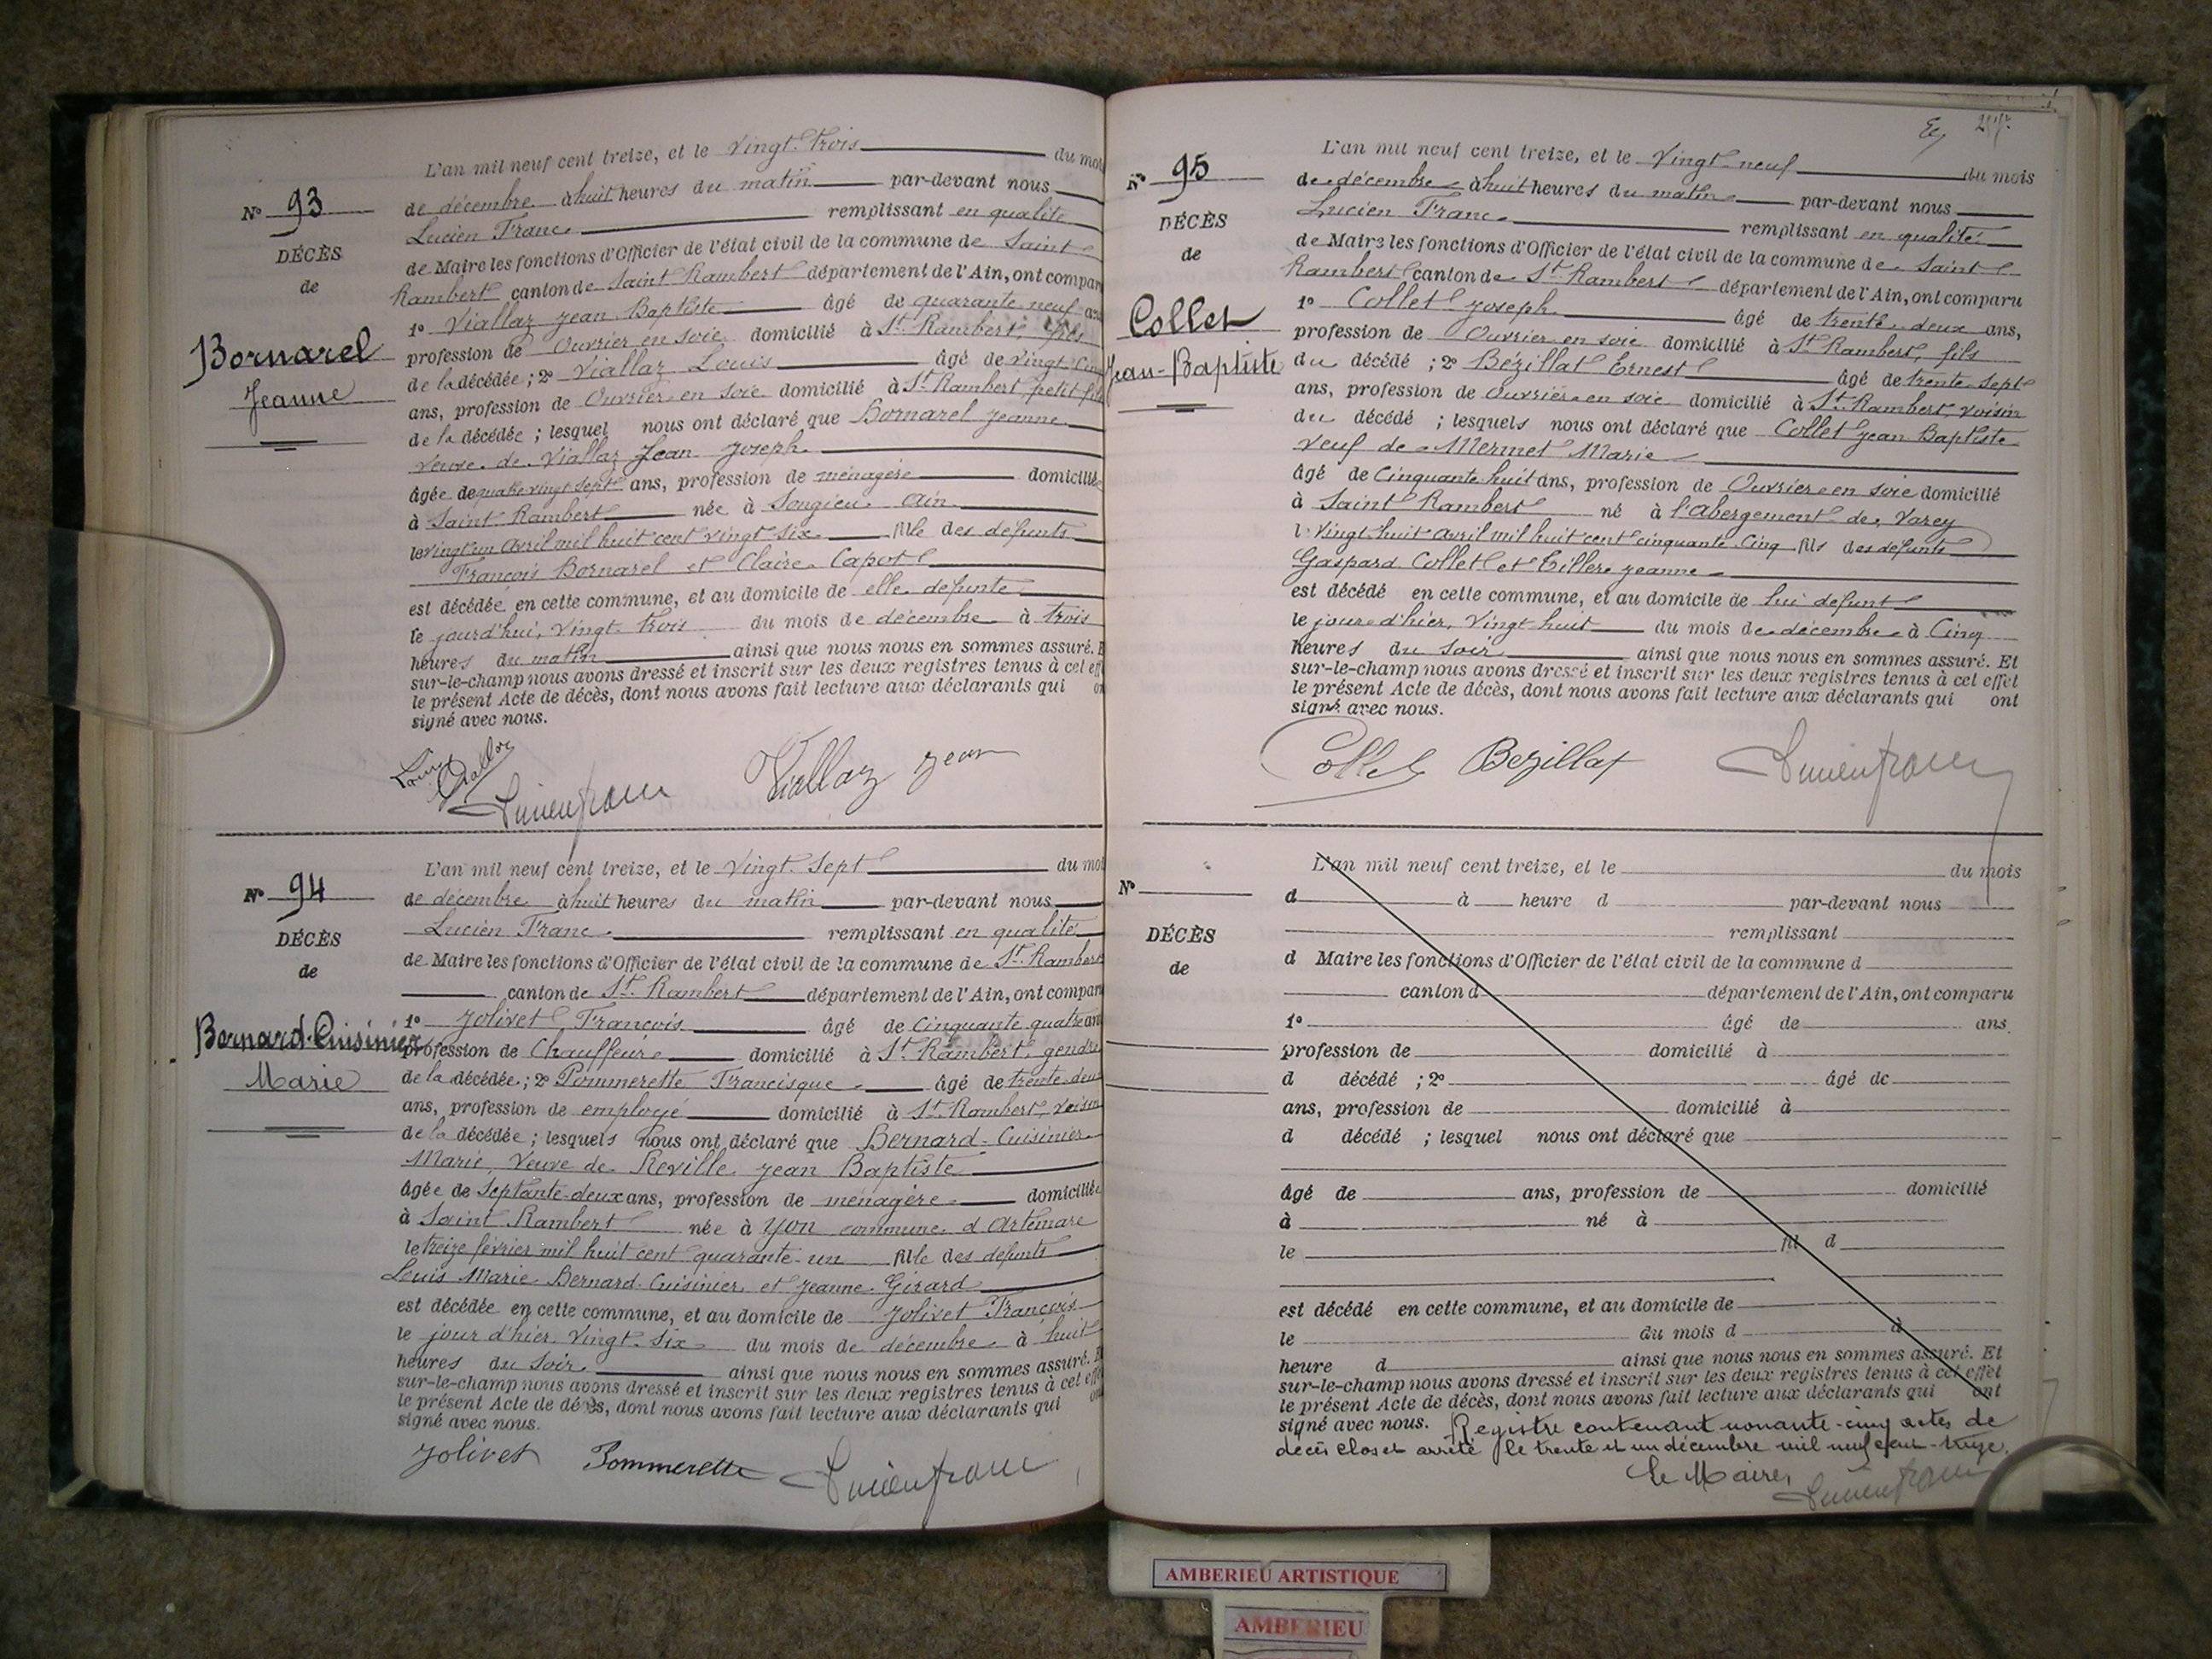 N° 93
DÉCÈS
de
Bornarel
Jeanne
L'an mil neuf cent treize, et le Vingt-trois du mois
de décembre à huit heures du matin par-devant nous
Lucien Franc remplissant en qualité
de Maire les fonctions d'Officier de l'état civil de la commune de Saint
Rambert canton de Saint Rambert département de l'Ain, ont compar
1° Viallaz Jean Baptiste âgé de quarante neuf ans
profession de Ouvrier en soie domicilié à St Rambert, fils
de la décédée ; 2° Viallaz Louis âgé de vingt cinq
ans, profession de Ouvrier en soie domicilié à St Rambert, petit fils
de la décédée ; lesquel nous ont déclaré que Bornarel Jeanne
veuve de Viallaz Jean Joseph
âgée de quatre vingt sept ans, profession de ménagère domiciliée
à Saint Rambert née à Songieu Ain
le vingt un Avril mil huit cent vingt six fille des défunts
François Bornarel et Claire Capot
est décédée en cette commune, et au domicile de elle défunte
le jourd'hui, vingt-trois du mois de décembre à trois
heures du matin ainsi que nous nous en sommes assuré. E
sur-le-champ nous avons dressé et inscrit sur les deux registres tenus à cet eff
le présent Acte de décès, dont nous avons fait lecture aux déclarants qui on
signé avec nous.
Louis Viallaz
Lucien franc
Viallaz Jean
N° 94
DÉCÈS
de
Bernard-Cuisinier
Marie
L'an mil neuf cent treize, et le Vingt-Sept du moi
de décembre à huit heures du matin par-devant nous
Lucien Franc remplissant en qualité
de Maire les fonctions d'Officier de l'état civil de la commune de St Rambert
canton de St Rambert département de l'Ain, ont compar
1° Jolivet François âgé de Cinquante quatre ans
profession de Chauffeur domicilié à St Rambert, gendre
de la décédée ; 2° Pommerette Francisque âgé de trente-deux
ans, profession de employé domicilié à St Rambert, voisin
de la décédée ; lesquels nous ont déclaré que Bernard-Cuisinier
Marie, Veuve de Reville Jean Baptiste
âgée de Septante-deux ans, profession de ménagère domiciliée
à Saint Rambert née à Yon commune d'Artemare
le treize février mil huit cent quarante-un fille des défunts
Louis Marie Bernard-Cuisinier et Jeanne Girard
est décédée en cette commune, et au domicile de Jolivet François
le jour d'hier vingt-six du mois de décembre à huit
heures du soir ainsi que nous nous en sommes assuré. E
sur-le-champ nous avons dressé et inscrit sur les deux registres tenus à cet effe
le présent Acte de décès, dont nous avons fait lecture aux déclarants qui on
signé avec nous.
Jolivet Pommerette Lucien franc
N° 95
DÉCÈS
de
Collet
Jean-Baptiste
L'an mil neuf cent treize, et le Vingt-neuf du mois
de décembre à huit heures du matin par-devant nous
Lucien Franc remplissant en qualité
de Maire les fonctions d'Officier de l'état civil de la commune de Saint
Rambert canton de St Rambert département de l'Ain, ont comparu
1° Collet Joseph âgé de trente-deux ans,
profession de Ouvrier en soie domicilié à St Rambert, fils
du décédé ; 2° Bézillat Ernest âgé de trente-sept
ans, profession de Ouvrier en soie domicilié à St Rambert, voisin
du décédé ; lesquels nous ont déclaré que Collet Jean Baptiste
veuf de Mermet Marie
âgé de Cinquante huit ans, profession de Ouvrier en soie domicilié
à Saint Rambert né à l'Abergement de Varey
l Vingt huit avril mil huit cent cinquante-Cinq fils des défunts
Gaspard Collet et Tillere Jeanne
est décédé en cette commune, et au domicile de lui défunt
le jour d'hier, Vingt huit du mois de décembre à Cinq
heures du soir ainsi que nous nous en sommes assuré. Et
sur-le-champ nous avons dressé et inscrit sur les deux registres tenus à cet effet
le présent Acte de décès, dont nous avons fait lecture aux déclarants qui ont
signé avec nous.
Collet Bezillat Lucien franc
N°
DÉCÈS
de
L'an mil neuf cent treize, et le du mois
d à heure d par-devant nous
remplissant
d Maire les fonctions d'Officier de l'état civil de la commune d
canton d département de l'Ain, ont comparu
1° âgé de ans
profession de domicilié à
d décédé ; 2° âgé de
ans, profession de domicilié à
d décédé ; lesquel nous ont déclaré que
âgé de ans, profession de domicilié
à né à
le fil d
est décédé en cette commune, et au domicile de
le du mois d à
heure d ainsi que nous nous en sommes assuré. Et
sur-le-champ nous avons dressé et inscrit sur les deux registres tenus à cet effet
le présent Acte de décès, dont nous avons fait lecture aux déclarants qui ont
signé avec nous. Registre contenant nonante-cinq actes de
décès clos et arrêté le trente et un décembre mil neuf cent-treize.
Le Maire,
Lucien franc
AMBERIEU ARTISTIQUE
AMBERIEU